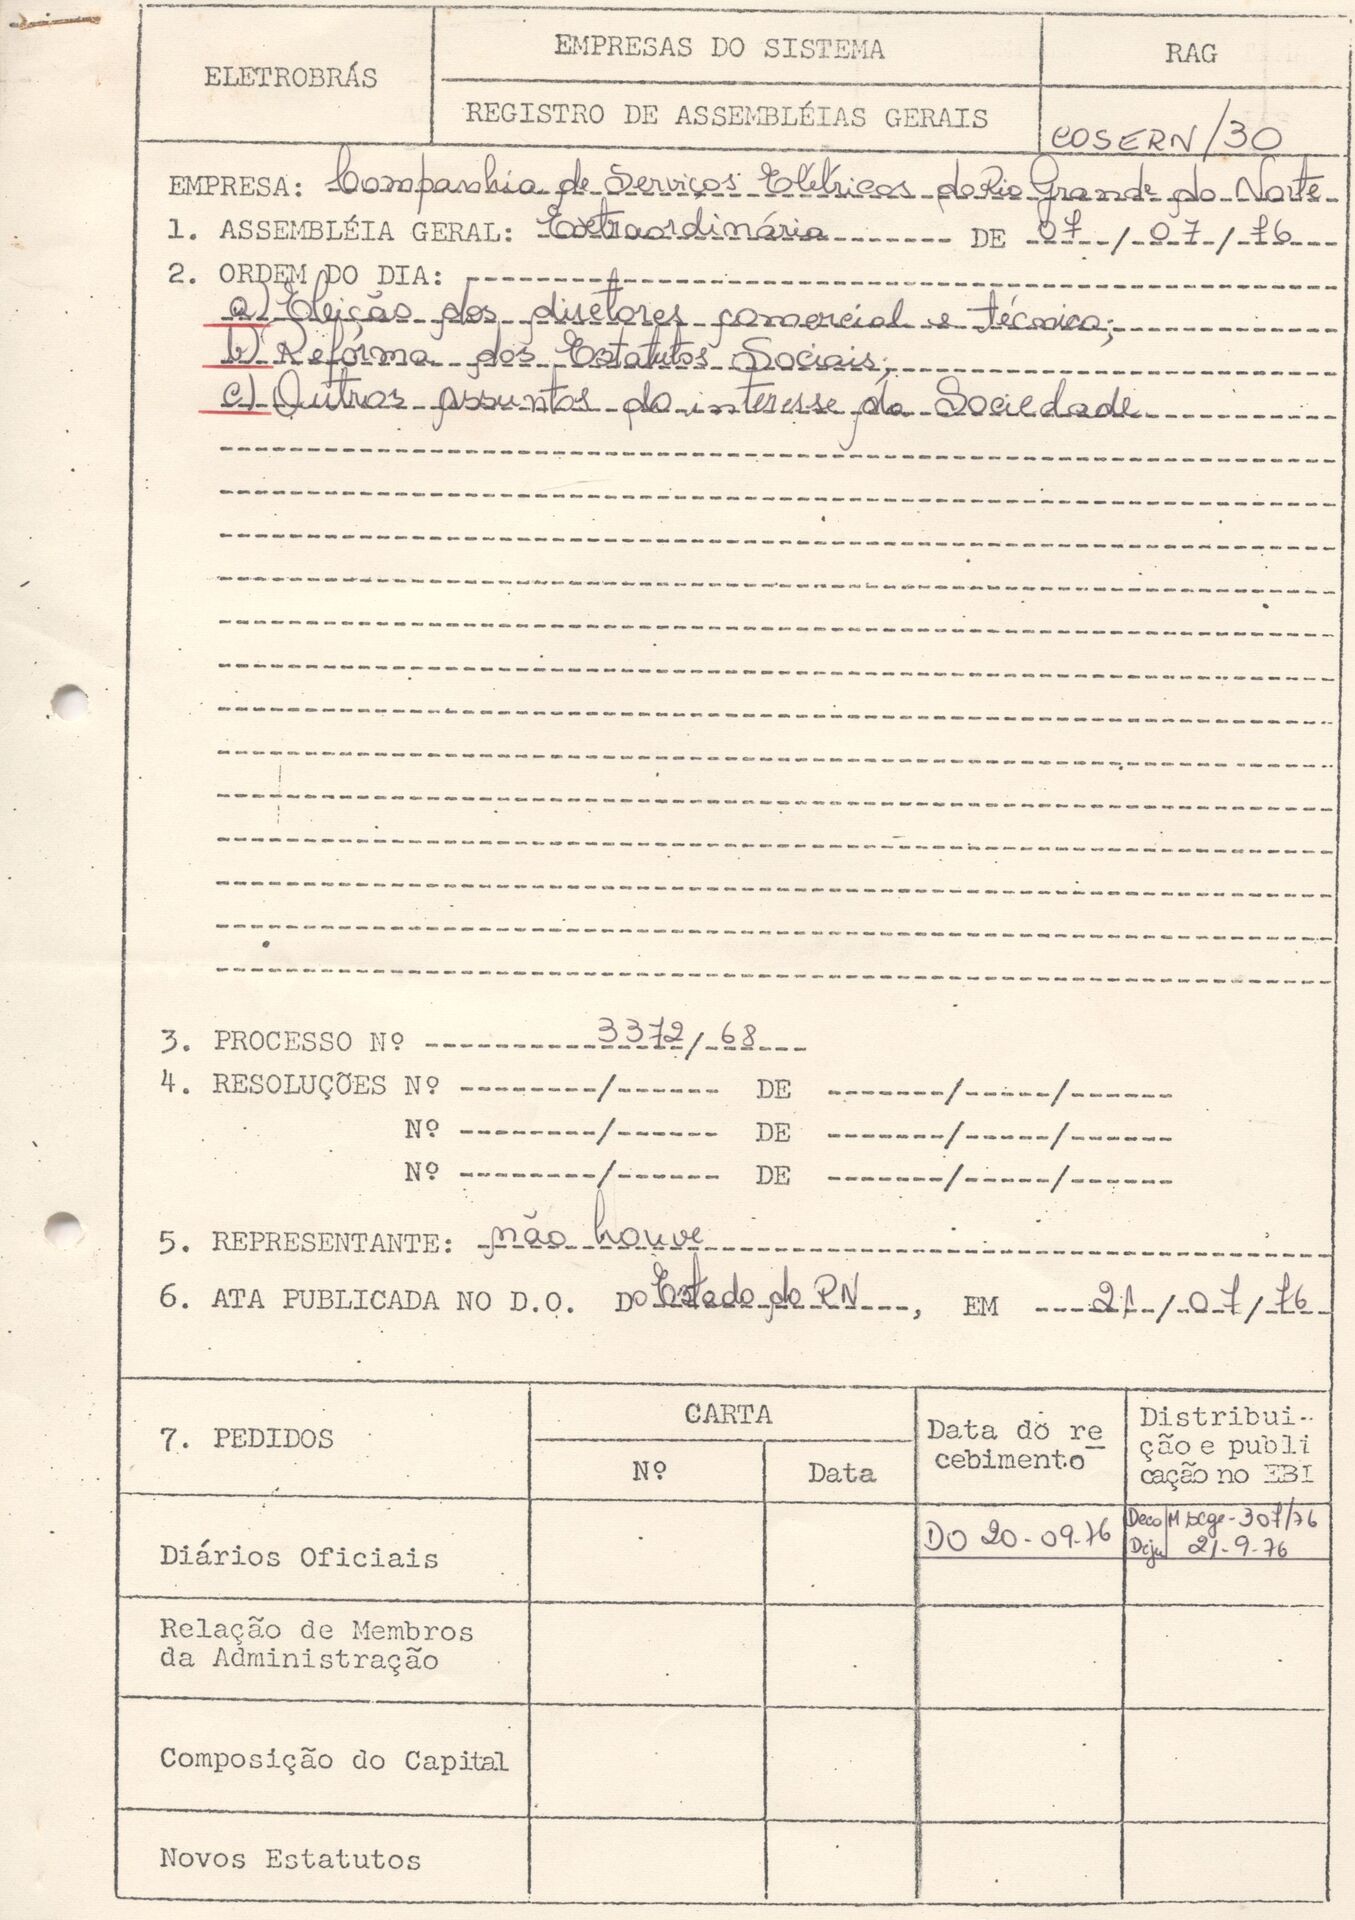 ELETROBRÁS
EMPRESAS DO SISTEMA
REGISTRO DE ASSEMBLÉIAS GERAIS
RAG
COSERN/30
EMPRESA: Companhia de Serviços Elétricos do Rio Grande do Norte
1. ASSEMBLÉIA GERAL: Extraordinária DE 07/07/76
2. ORDEM DO DIA:
a) Eleição dos diretores comercial e técnico;
b) Refórma dos Estatutos Sociais;
c) Outros assuntos do interesse da Sociedade
3. PROCESSO Nº 3372/68
4. RESOLUÇÕES Nº / DE / /
Nº / DE / /
Nº / DE / /
5. REPRESENTANTE: não houve
6. ATA PUBLICADA NO D.O. DO Estado do RN, EM 21/07/76
7. PEDIDOS
CARTA
Nº
Data
Data do re
cebimento
Distribui-
ção e publi
cação no EBI
Diários Oficiais
DO 20-09-76
Deco M scge-307/76
Deju 21-9-76
Relação de Membros
da Administração
Composição do Capital
Novos Estatutos